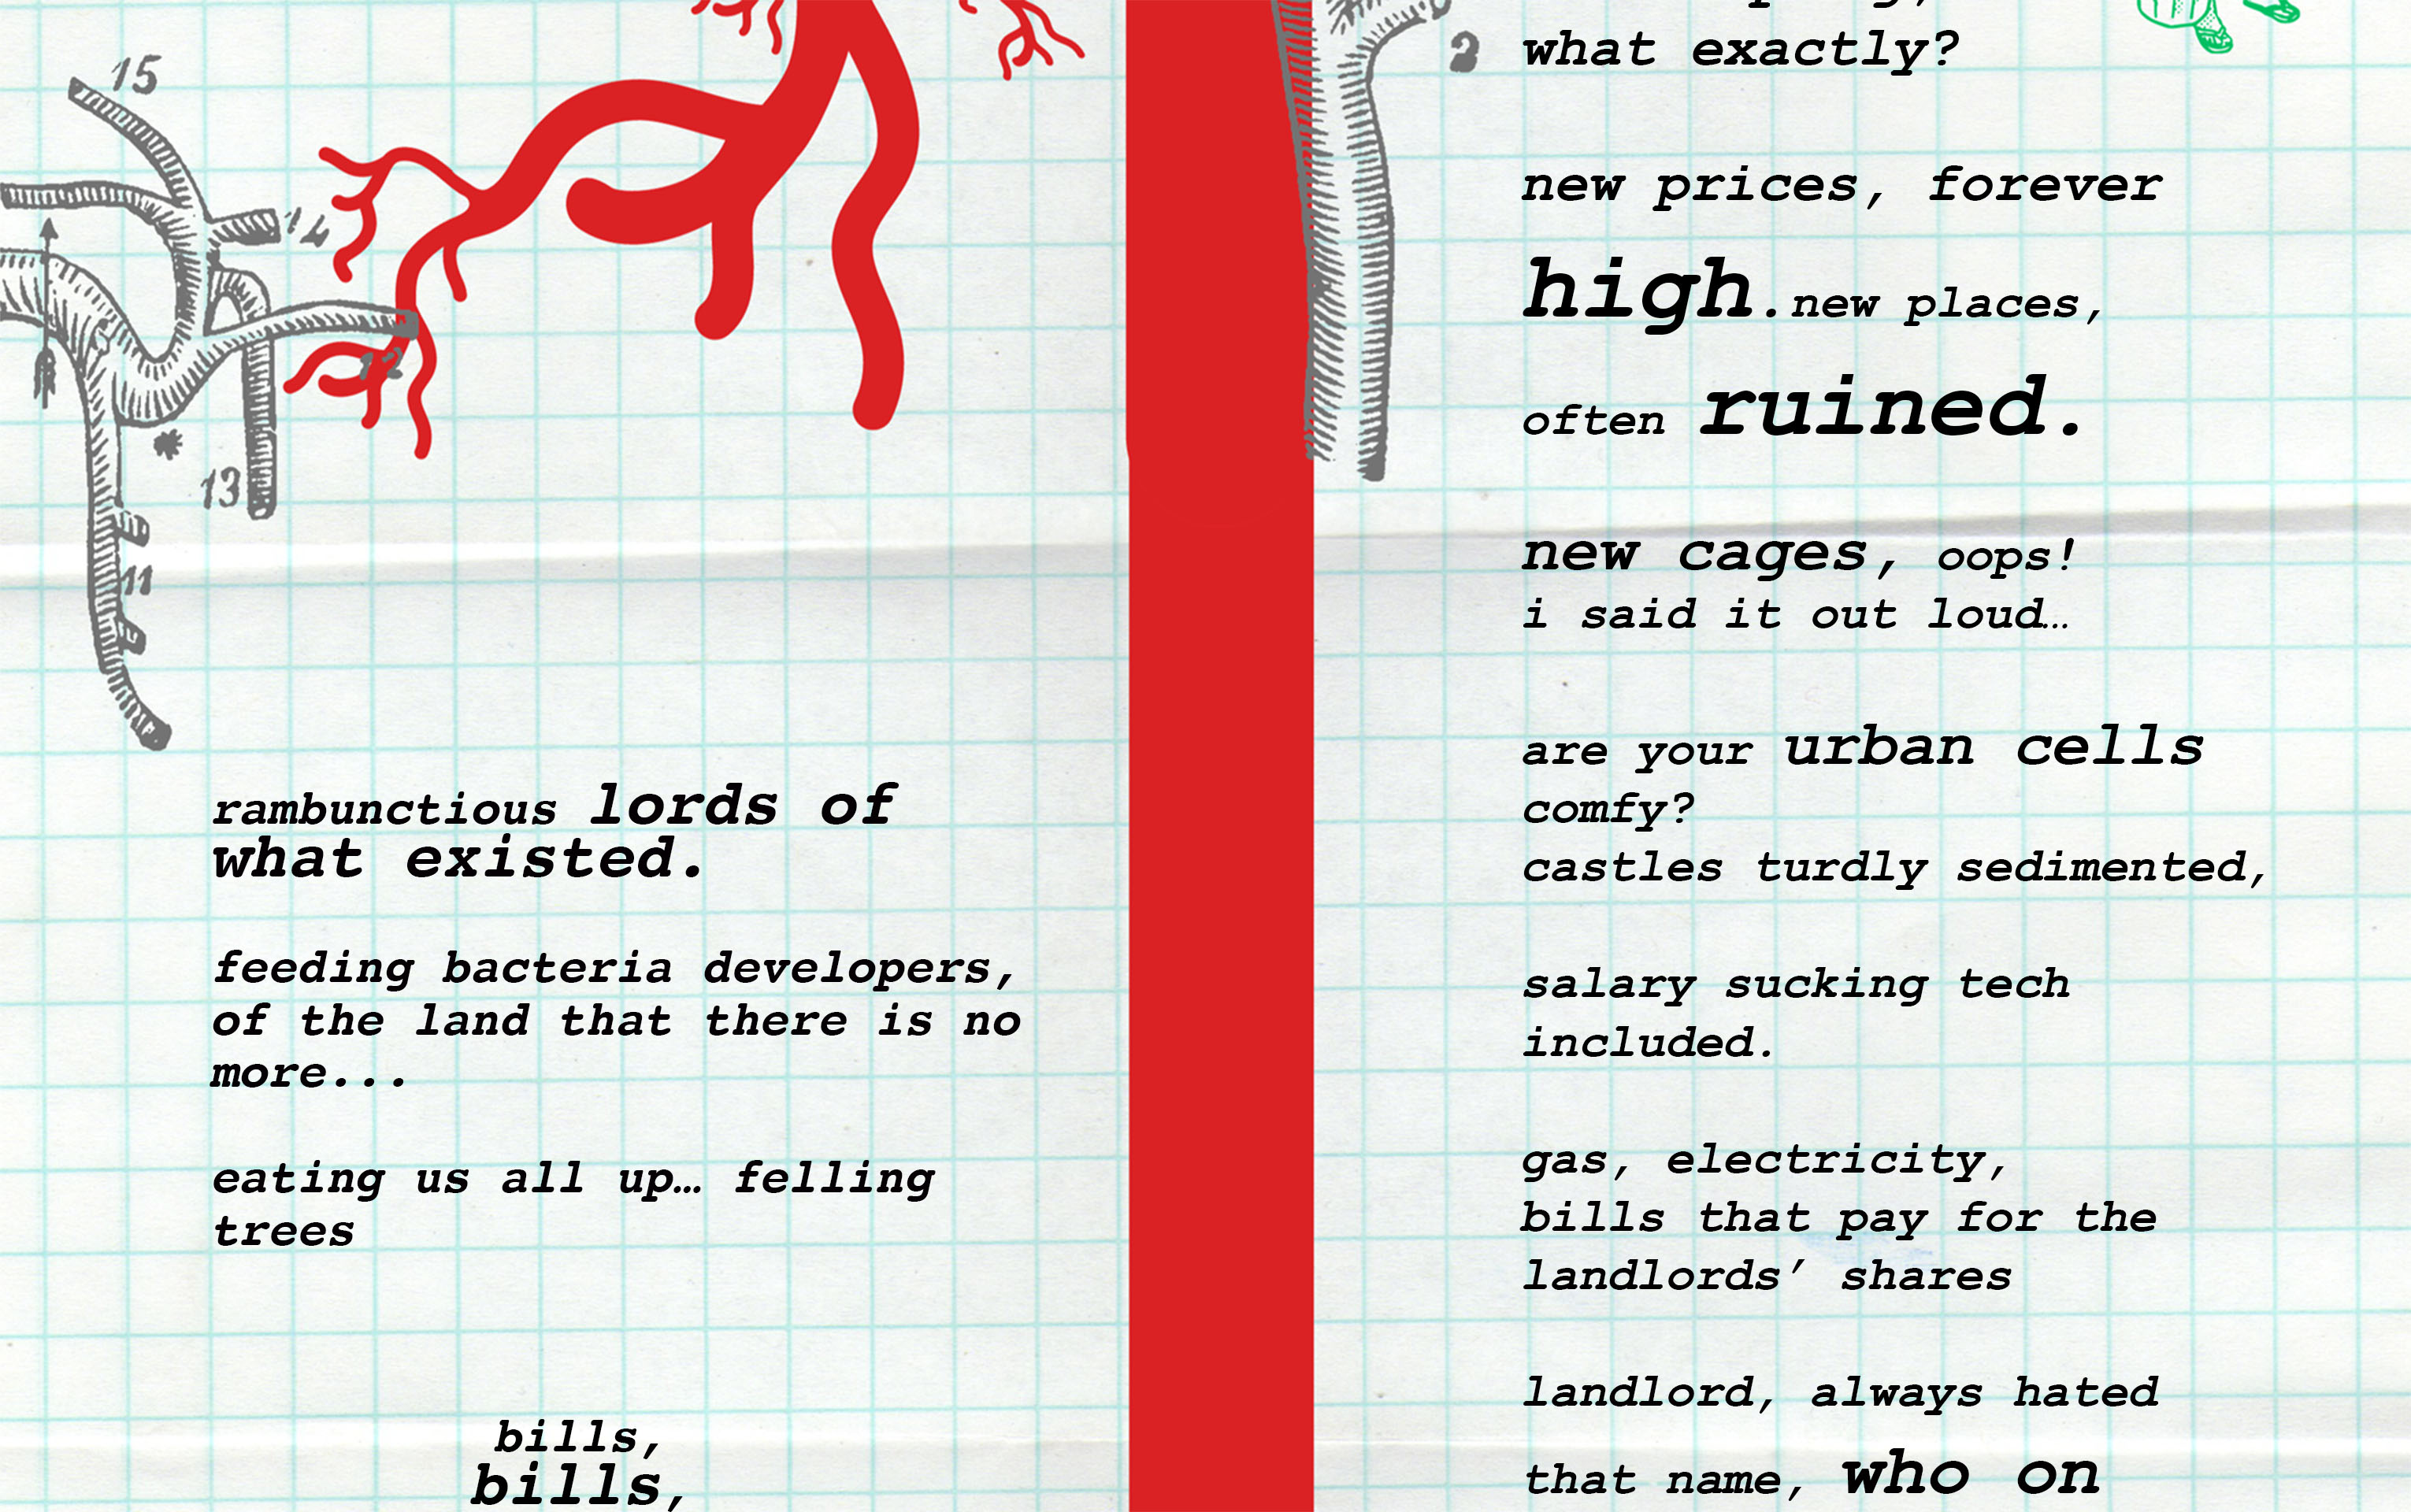 15
14
12
13
11
rambunctious lords of
what existed.
feeding bacteria developers,
of the land that there is no
more...
eating us all up… felling
trees
bills,
bills,
2
what exactly?
new prices, forever
high.new places,
often ruined.
new cages, oops!
i said it out loud…
are your urban cells
comfy?
castles turdly sedimented,
salary sucking tech
included.
gas, electricity,
bills that pay for the
landlords’ shares
landlord, always hated
that name, who on